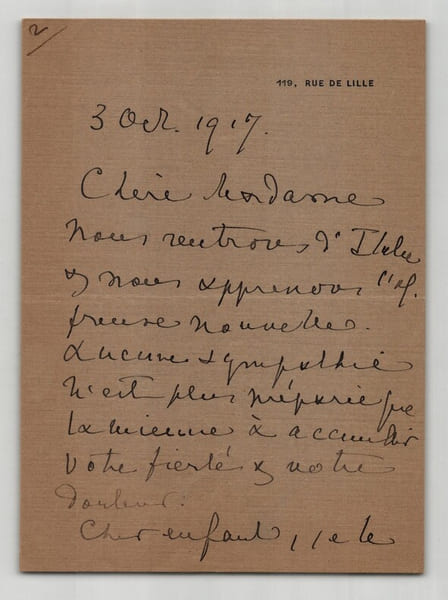 2
119, RUE DE LILLE
3 Oct. 1917.
Chère Madame
nous rentrons d'Italie
& nous apprenons l'af-
freuse nouvelle.
Aucune sympathie
n'est plus préparée que
la mienne à accueillir
votre fierté & votre
douleur.
Cher enfant, je le